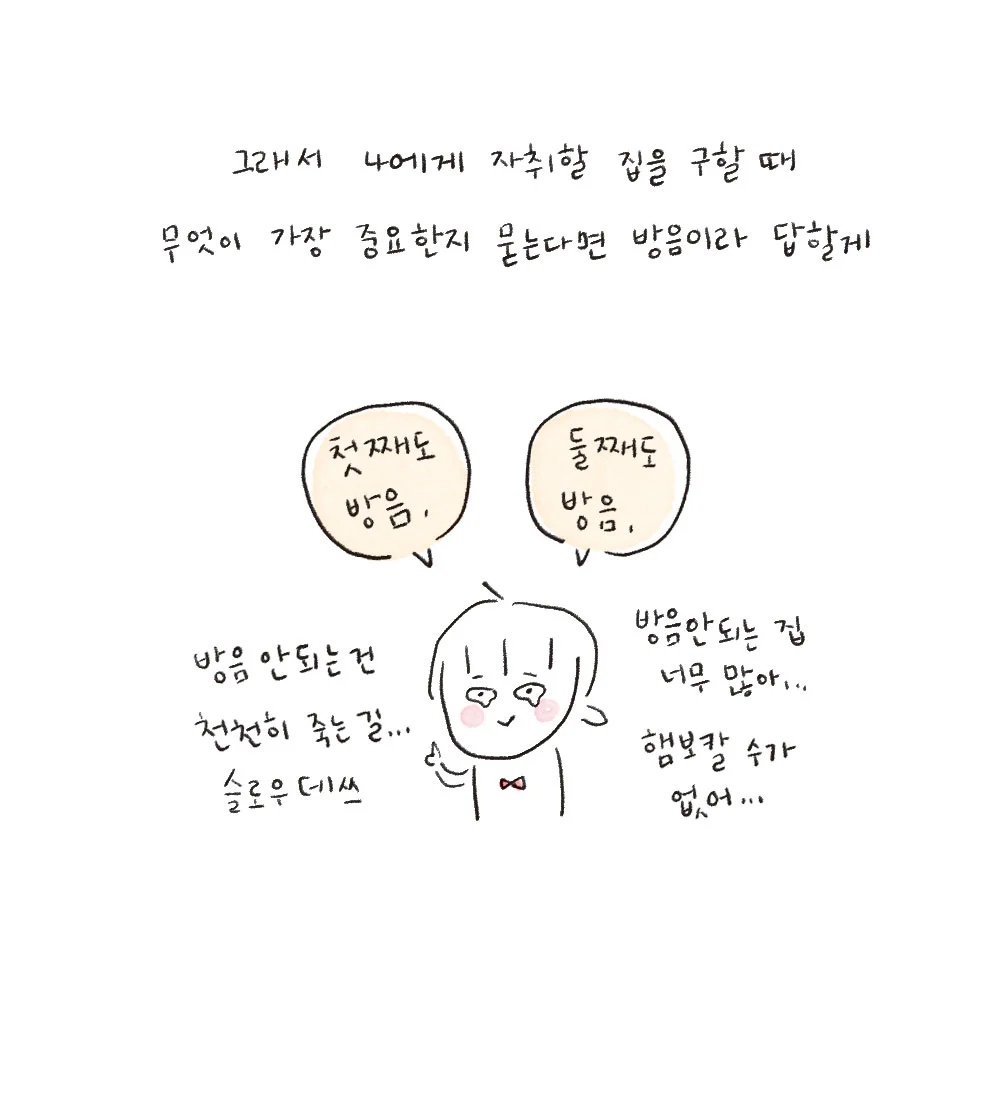 그래서 나에게 자취할 집을 구할 때
무엇이 가장 중요한지 묻는다면 방음이라 답할게
첫째도
방음.
둘째도
방음.
방음 안되는건
천천히 죽는길...
슬로우 데쓰
방음안되는 집
너무 많아...
햄보칼 수가
없어...